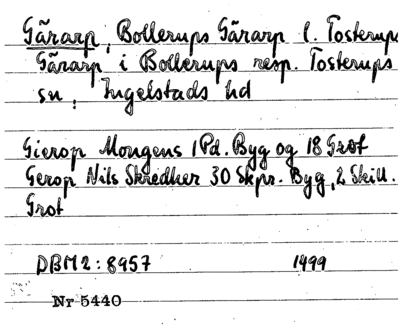 Gärarp, Bollerups Gärarp l. Tosterups
Gärarp i Bollerups resp. Tosterups
sn, Ingelstads hd
Gierop Mongens 1 Pd. Byg og 18 Grot
Gerop Nils Skredker 30 Skpr. Byg, 2 Skill.
Grot
DBM2: 8957 1499
Nr 5440